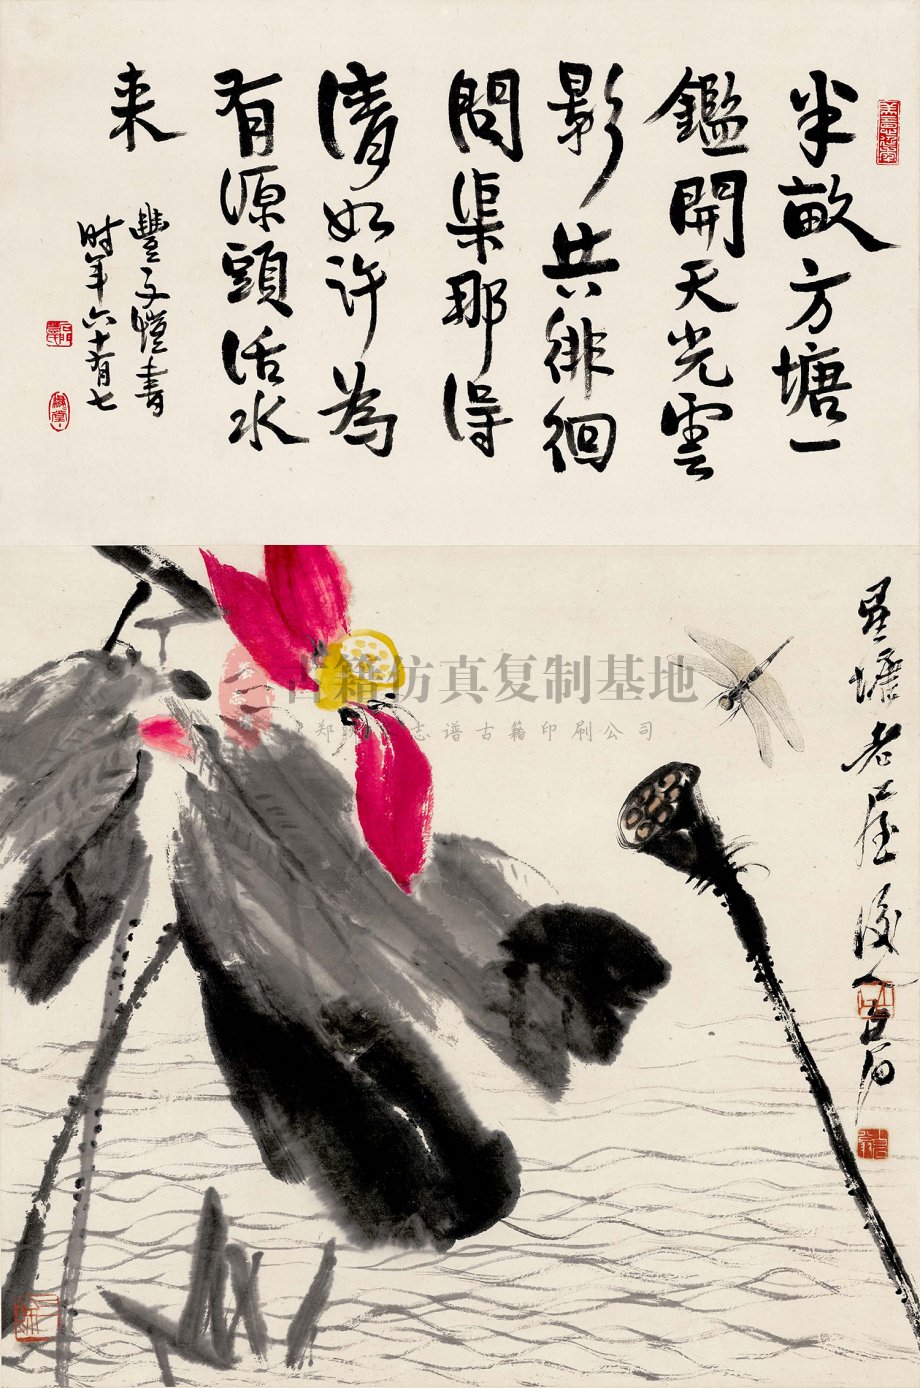 半畝方塘一
鑑開天光雲
影共徘徊
問渠那得
清如许為
有源頭活水
来
豐子愷書
时年六十有七
古籍仿真复制基地
志谱古籍印刷公司
星塘老屋後人
白石